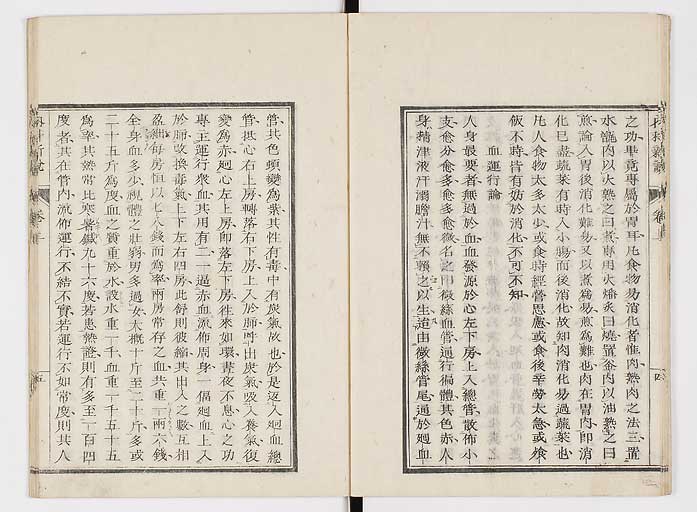 之功畢竟專屬於胃耳凡食物易消化者惟肉熟肉之法三置
水鑵肉以火熟之曰煮專用火燔炙曰燒置釜肉以油熟之曰
煎論入胃後消化難易又以煮為易煎為難也肉在胃肉即消
化已盡蔬菜有時入小腸而後消化故知肉消化易過蔬菜也
凡人食物太多太少或食時經營思慮或食後辛勞太急或飧
飯不時皆有妨於消化不可不知
血運行論
人身最要者無過於血血發源於心左下房上入總管散佈小
支愈分愈多愈多愈微名之曰微絲血管運行徧體其色赤人
身精津液汗溺膽汁無不賴之以生迨由微絲管尾通於廻血
管其色頓變為紫其性有毒中有炭氣故也於是返入廻血總
管抵心右上房轉落右下房上入於肺呼出炭氣吸入養氣復
變為赤廻心左上房即落左下房往來如環晝夜不息心之功
專主運行衆血其用有二一逼赤血流佈周身一偪廻血上入
於肺改換毒氣上下左右四房此舒則彼縮其出入之數互相
盈絀每房恒以七八錢而為率兩房常存之血共重一兩六錢
全身血多少視體之壯弱男多過女大概十斤至二十斤多或
二十五斤為度血之質重於水設水重一千血重一千五十五
為率其熱常比寒暑鍼九十六度若患熱證則有多至一百四
度者其在管內流佈運行不結不實若運行不如常度則其人
內科新說 卷上
五
四